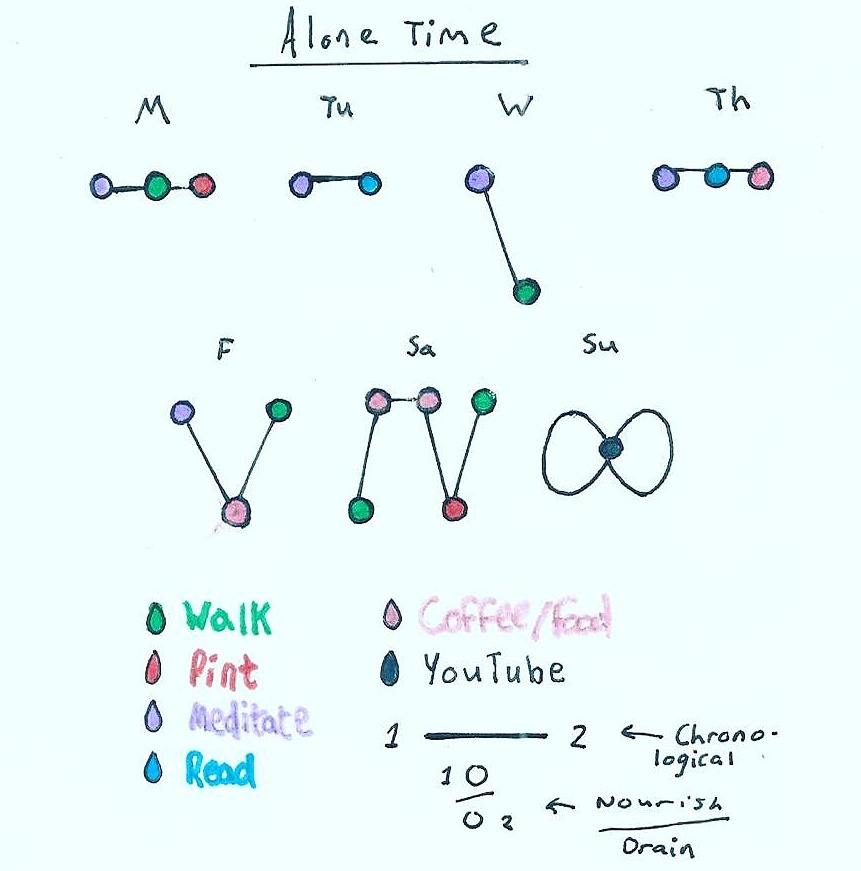 Alone Time
M Tu W Th
F Sa Su
Walk
Pint
Meditate
Read
Coffee/Food
YouTube
1 2 ← Chrono-
logical
1 O
O 2 ← Nourish
Drain